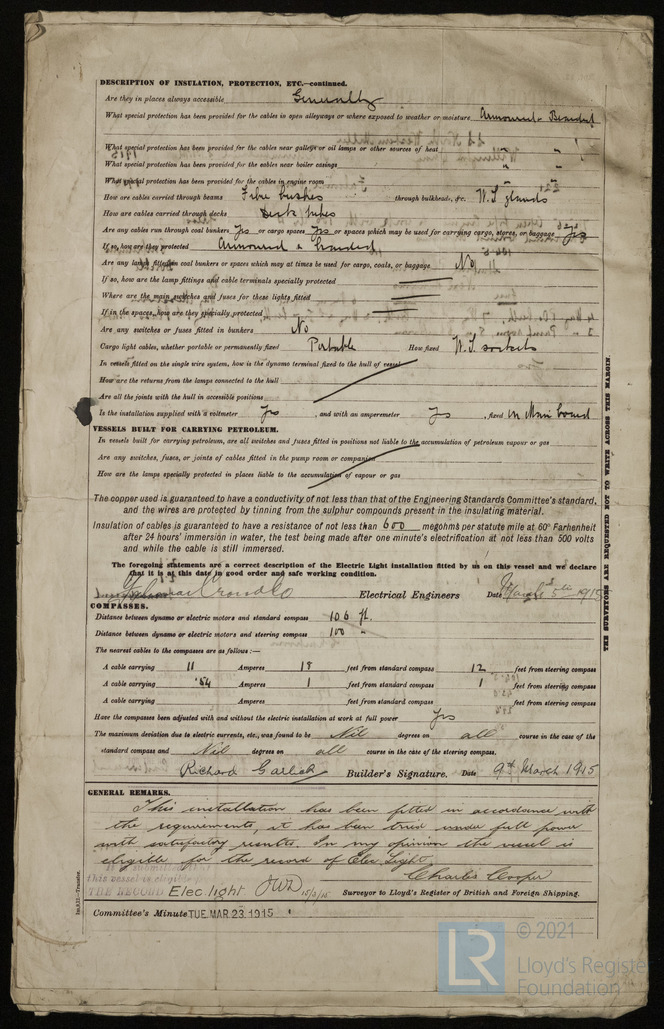 DESCRIPTION OF INSULATION, PROTECTION, ETC.—continued.
Are they in places always accessible Generally
What special protection has been provided for the cables in open alleyways or where exposed to weather or moisture Armoured & Braided
What special protection has been provided for the cables near galleys or oil lamps or other sources of heat " "
What special protection has been provided for the cables near boiler casings " "
What special protection has been provided for the cables in engine room " "
How are cables carried through beams Fibre bushes through bulkheads, &c. W.T. glands
How are cables carried through decks Deck pipes
Are any cables run through coal bunkers Yes or cargo spaces Yes or spaces which may be used for carrying cargo, stores, or baggage Yes
If so, how are they protected Armoured & braided
Are any lamps fitted in coal bunkers or spaces which may at times be used for cargo, coals, or baggage No
If so, how are the lamp fittings and cable terminals specially protected
Where are the main switches and fuses for these lights fitted
If in the spaces, how are they specially protected
Are any switches or fuses fitted in bunkers No
Cargo light cables, whether portable or permanently fixed Portable How fixed W.T. sockets
In vessels fitted on the single wire system, how is the dynamo terminal fixed to the hull of vessel
How are the returns from the lamps connected to the hull
Are all the joints with the hull in accessible positions
Is the installation supplied with a voltmeter Yes , and with an amperemeter Yes , fixed on Main board
VESSELS BUILT FOR CARRYING PETROLEUM.
In vessels built for carrying petroleum, are all switches and fuses fitted in positions not liable to the accumulation of petroleum vapour or gas
Are any switches, fuses, or joints of cables fitted in the pump room or companion
How are the lamps specially protected in places liable to the accumulation of vapour or gas
The copper used is guaranteed to have a conductivity of not less than that of the Engineering Standards Committee's standard,
and the wires are protected by tinning from the sulphur compounds present in the insulating material.
Insulation of cables is guaranteed to have a resistance of not less than 600 megohms per statute mile at 60° Farhenheit
after 24 hours' immersion in water, the test being made after one minute's electrification at not less than 500 volts
and while the cable is still immersed.
The foregoing statements are a correct description of the Electric Light installation fitted by us on this vessel and we declare
that it is at this date in good order and safe working condition.
Electrical Engineers Date March 5th 1915
COMPASSES.
Distance between dynamo or electric motors and standard compass 106 ft.
Distance between dynamo or electric motors and steering compass 100 "
The nearest cables to the compasses are as follows:—
A cable carrying 11 Amperes 18 feet from standard compass 12 feet from steering compass
A cable carrying .54 Amperes 1 feet from standard compass 1 feet from steering compass
A cable carrying Amperes feet from standard compass feet from steering compass
Have the compasses been adjusted with and without the electric installation at work at full power Yes
The maximum deviation due to electric currents, etc., was found to be Nil degrees on all course in the case of the
standard compass and Nil degrees on all course in the case of the steering compass.
Richard Garlick Builder's Signature. Date 9th March 1915
GENERAL REMARKS.
This installation has been fitted in accordance with
the requirements, it has been tried under full power
with satisfactory results. In my opinion the vessel is
eligible for the record of Elec. Light.
It is submitted that
this vessel is eligible for
THE RECORD Elec. light JWD 15/3/15
Charles Cooper
Surveyor to Lloyd's Register of British and Foreign Shipping.
Committee's Minute TUE. MAR. 23. 1915
THE SURVEYORS ARE REQUESTED NOT TO WRITE ACROSS THIS MARGIN.
LR
© 2021
Lloyd's Register
Foundation